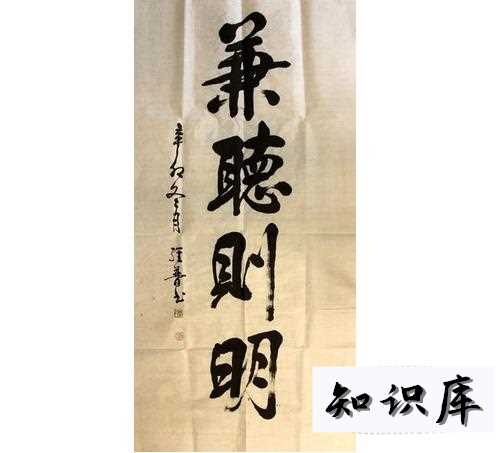 兼聽則明
辛卯冬月
書
知识库